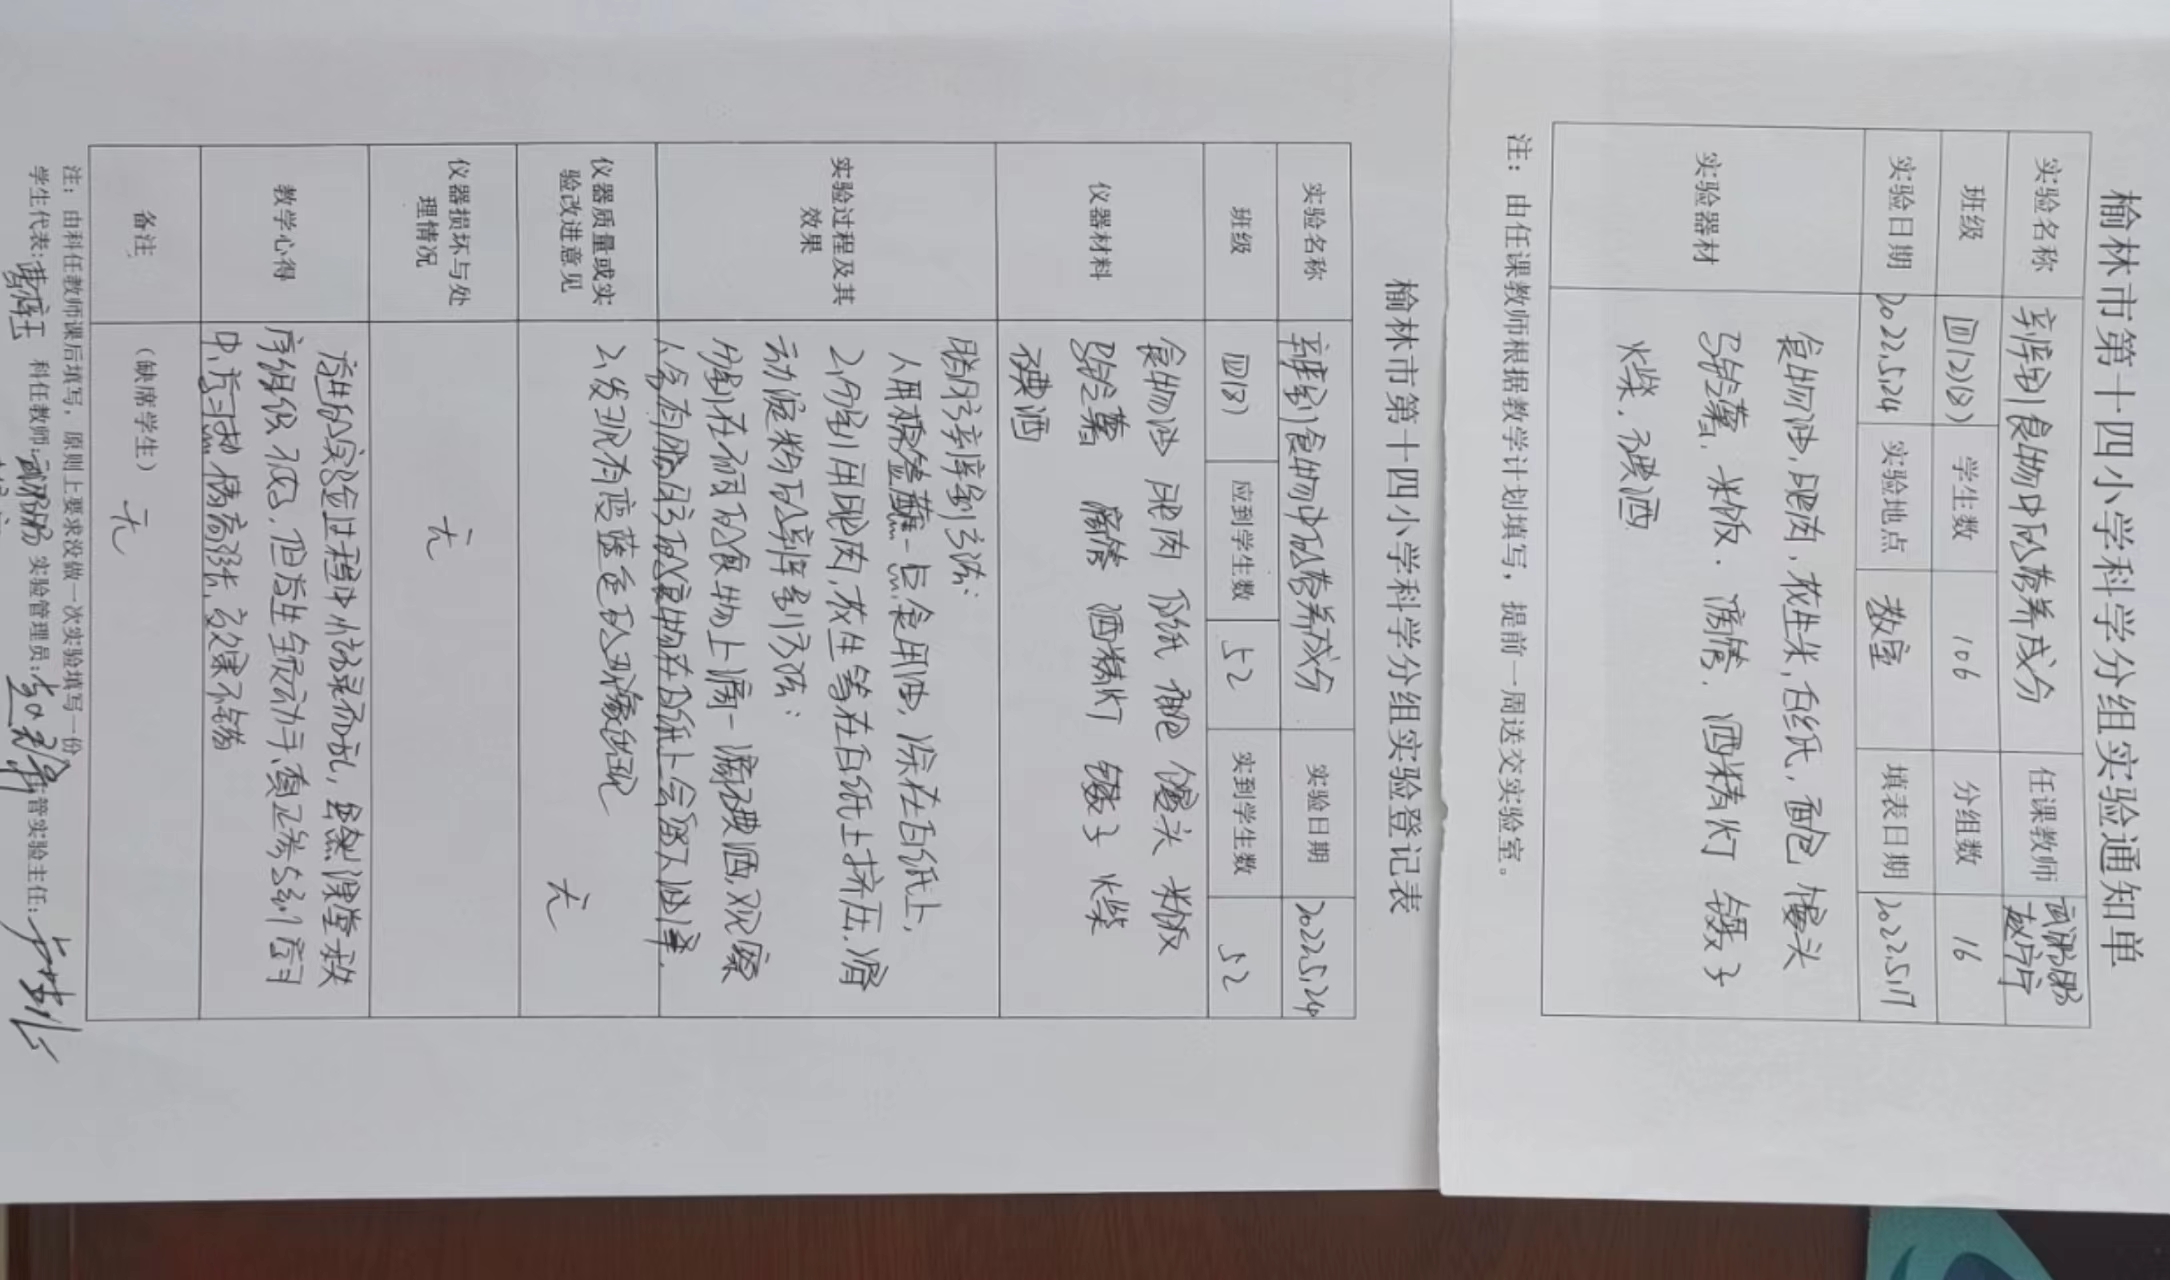 榆林市第十四小学科学分组实验通知单
实验名称 辨别食物中的营养成分 任课教师
班级 四(2)(8) 学生数 106 分组数 16
实验日期 2022.5.24 实验地点 教室 填表日期 2022.5.17
实验器材 食物油,肥肉,花生米,白纸,面包 馒头
马铃薯,米饭.滴管.酒精灯 镊子
火柴.碘酒
注：由任课教师根据教学计划填写，提前一周送交实验室。
榆林市第十四小学科学分组实验登记表
实验名称 辨别食物中的营养成分 实验日期 2022.5.24
班级 四(8) 应到学生数 52 实到学生数 52
仪器材料 食物油 肥肉 白纸 面包 馒头 米饭
马铃薯 滴管 酒精灯 镊子 火柴
碘酒
实验过程及其
效果
脂肪辨别方法:
1.用棉签蘸一点食用油,涂在白纸上,
2.分别用肥肉,花生等在白纸上挤压.滑
动淀粉的辨别方法:
分别在不同的食物上滴一滴碘酒,观察
1.含有脂肪的食物在白纸上会留下油渍.
2.发现有变蓝色的现象出现
仪器质量或实
验改进意见
无
仪器损坏与处
理情况
无
教学心得
在进行实验过程中,总的来说,虽然课堂秩
序组织不好,但学生会动手,真正参与到学习
中,学习热情高涨,效果不错
备注
（缺席学生） 无
注：由科任教师课后填写，原则上要求没做一次实验填写一份
学生代表: 科任教师: 实验管理员: 主管实验主任: